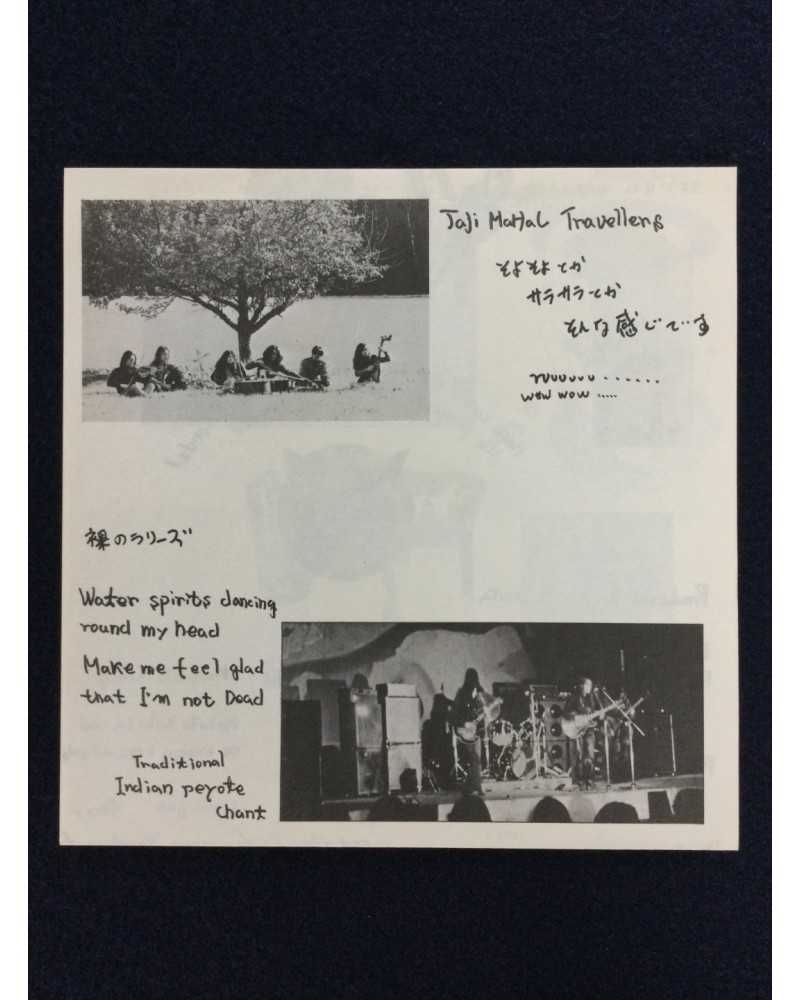 Taji Mahal Travellers
そよそよとか
サラサラとか
そんな感じです
ruuuuuu ......
wow wow .....
裸のラリーズ
Water spirits dancing
round my head
Make me feel glad
that I'm not Dead
Traditional
Indian peyote
Chant